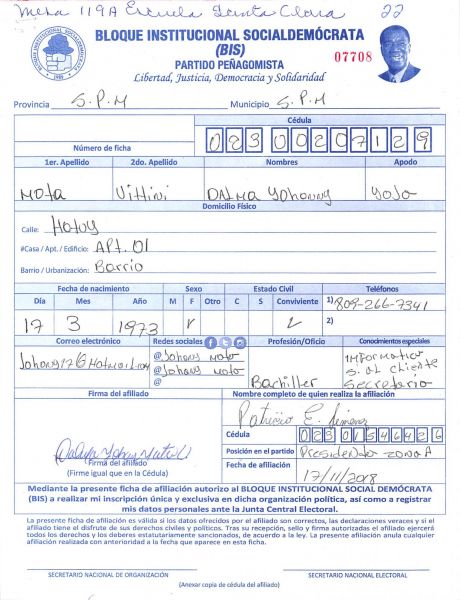 Mesa 119A Escuela Santa Clara 22
BLOQUE INSTITUCIONAL SOCIALDEMÓCRATA
(BIS)
PARTIDO PEÑAGOMISTA
Libertad, Justicia, Democracia y Solidaridad
07708
Provincia S.P.M Municipio S.P.M
Cédula
Número de ficha 02300207129
1er. Apellido 2do. Apellido Nombres Apodo
Mota Vittini DALMA Yohanny YoJo
Domicilio Físico
Calle: Hatuy
#Casa / Apt. / Edificio: APT. 01
Barrio / Urbanización: Barrio
Fecha de nacimiento Sexo Estado Civil Teléfonos
Día Mes Año M F Otro C S Conviviente 1) 809-266-7341
17 3 1973 2)
Correo electrónico Redes sociales Profesión/Oficio Conocimientos especiales
@Johany Mota
@Johany Mota
@
Bachiller
Informatica
S. al cliente
Secretario
Firma del afiliado Nombre completo de quien realiza la afiliación
Patricio E. Jimenez
Cédula 02301546426
Posición en el partido Presidente zona A
Fecha de afiliación 17/11/2018
Firma del afiliado
(Firme igual que en la Cédula)
Mediante la presente ficha de afiliación autorizo al BLOQUE INSTITUCIONAL SOCIAL DEMÓCRATA
(BIS) a realizar mi inscripción única y exclusiva en dicha organización política, así como a registrar
mis datos personales ante la Junta Central Electoral.
La presente ficha de afiliación es válida si los datos ofrecidos por el afiliado son correctos, las declaraciones veraces y si el
afiliado tiene el disfrute de sus derechos civiles y políticos. Tras su recepción, sello y firma autorizadas el afiliado ejercerá
todos los derechos y los deberes estatutariamente sancionados, de acuerdo a la ley. La presente afiliación anula cualquier
afiliación realizada con anterioridad a la fecha que aparece en esta ficha.
SECRETARIO NACIONAL DE ORGANIZACIÓN SECRETARIO NACIONAL ELECTORAL
(Anexar copia de cédula del afiliado)